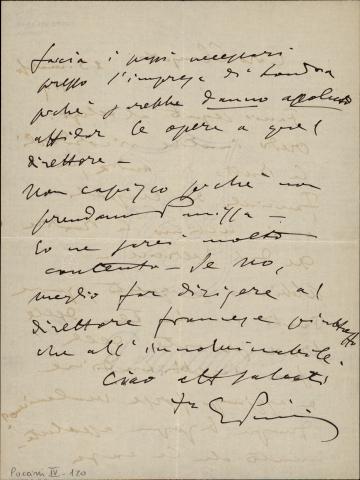 faccia i passi necessari
presso l'impresa di Londra
perchè sarebbe danno assoluto
affidar le opere a quel
direttore —
Non capisco perchè non
prendano —
Io ne sarei molto
contento — Se no,
meglio far dirigere al
direttore francese piuttosto
che all'
Ciao aff saluti
tu G Puccini
Puccini IV - 120